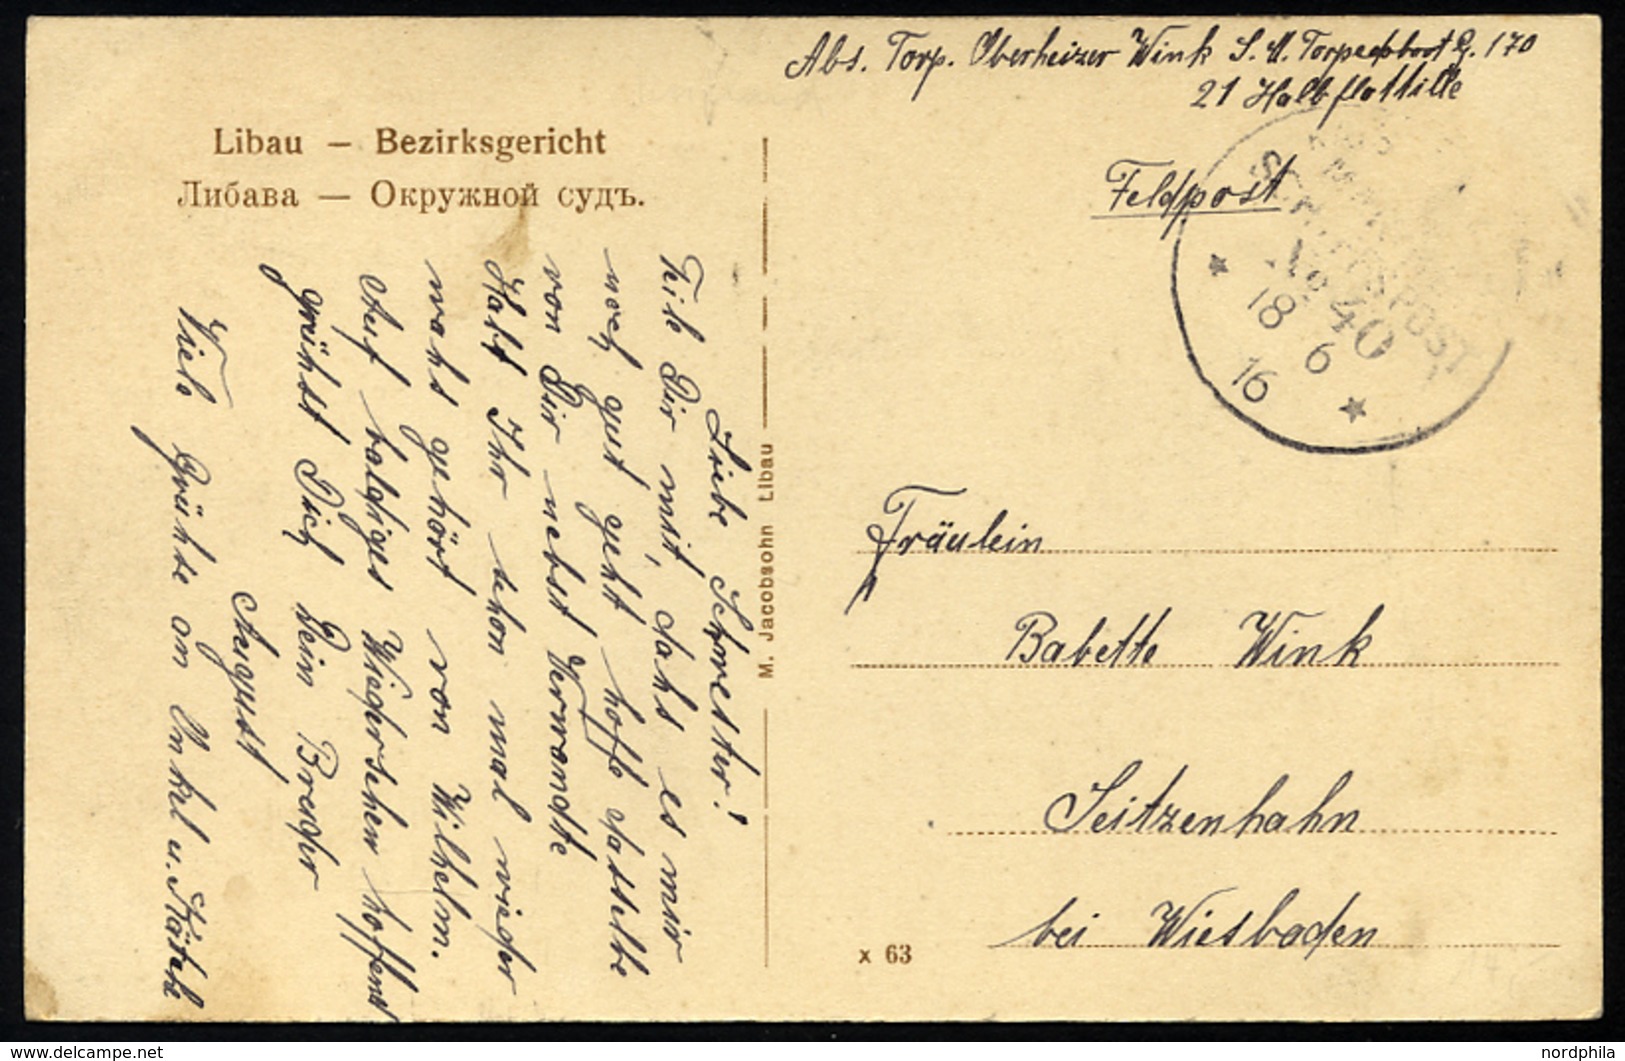 Abs. Torp. Oberheizer Wink S. M. Torpedoboot G. 170
21 Halbflottille
Libau — Bezirksgericht
Либава — Окружной судъ.
Feldpost
SCHIFFSPOST
No 40
18 6
16
Liebe Schwester!
Teile Dir mit, dahs es mir
noch gut geht hoffe dasselbe
von Dir nebst Verwandte
Habt Ihr schon mal wieder
wahs gehört von Wilhelm.
Auf baldiges Wiedersehen hoffend
grühst Dich Dein Bruder
August
Viele Grühse an Onkel u.
M. Jacobsohn Libau
Fräulein
Babette Wink
Seitzenhahn
bei Wiesbaden
x 63
delcampe.net
nordphila